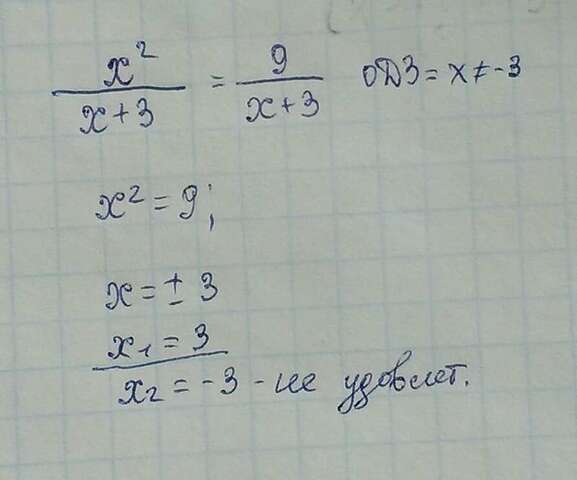 x²/(x+3) = 9/(x+3) ОДЗ = x ≠ -3
x² = 9;
x = ± 3
x₁ = 3
x₂ = -3 - не удовлет.